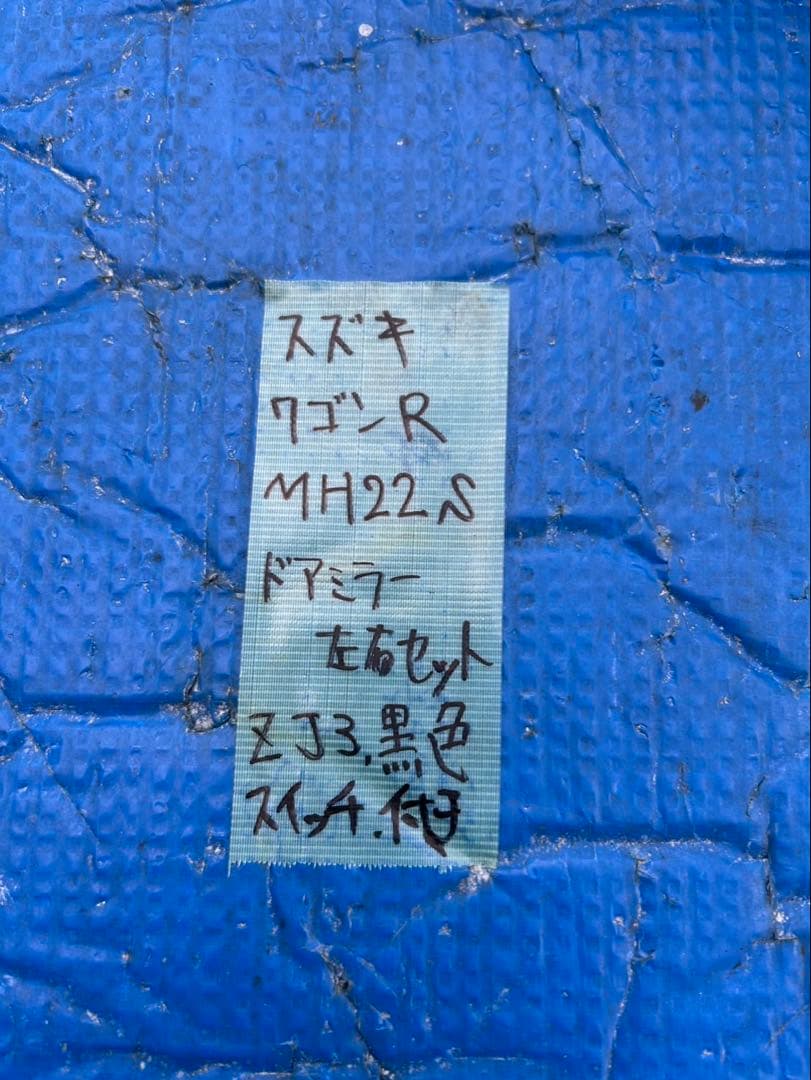 スズキ
ワゴンR
MH22S
ドアミラー
左右セット
ZJ3.黒色
スイッチ.付